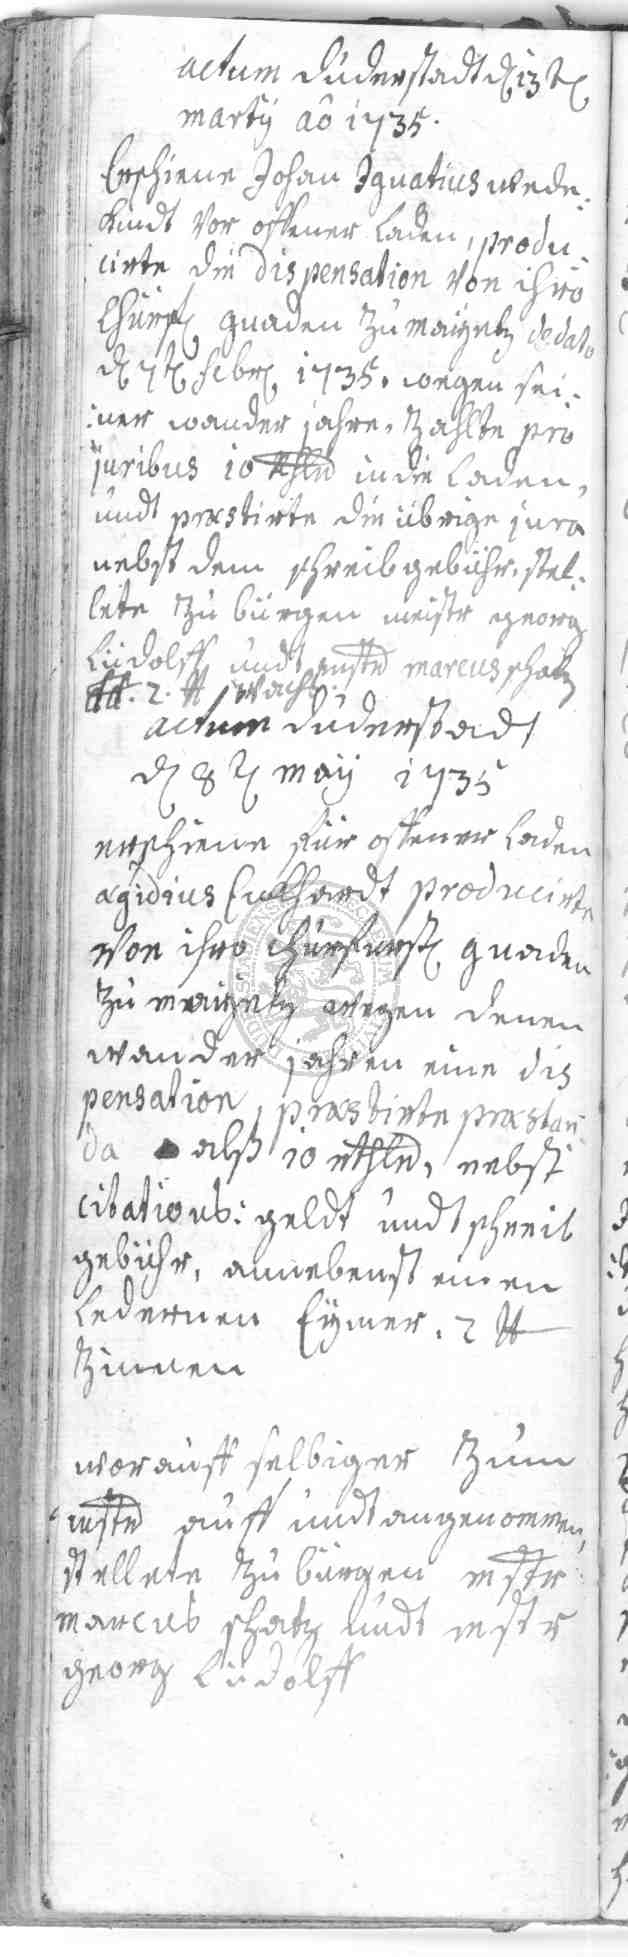 actum duderstadt d 13 t
martÿ aō 1735.
Erschiene Johan Ignatius wede-
kindt vor offener laden, produ-
cirte die dispensation von ihro
Chürf gnaden zu maÿntz de dato
d 7t febr 1735. wegen sei-
ner wander jahre. zahlte pro
juribus 10 rthlr in die laden,
undt præstirte die übrige jura
nebst dem schreibgebühr, stel-
lete zu bürgen meistr georg
Lüdolff undt mstr marcus schatz
dd. 2. ℔ wachs.
actum duderstadt
d 8 t maÿ 1735
erschiene für offener laden
ægidius Eckhardt producirte
von ihro churfurst gnaden
zu maÿntz wegen denen
wander jahren eine dis
pensation, præstirte præstan
da alß 10 rthlr, nebst
citations: geldt undt schreib
gebühr, annebenst einen
ledernen Eÿmer, 2 ℔
Zinnen
worauff selbiger zum
mstr auff undt angenommen,
stellete zu bürgen mstr
marcus schatz undt mstr
georg Lüdolff